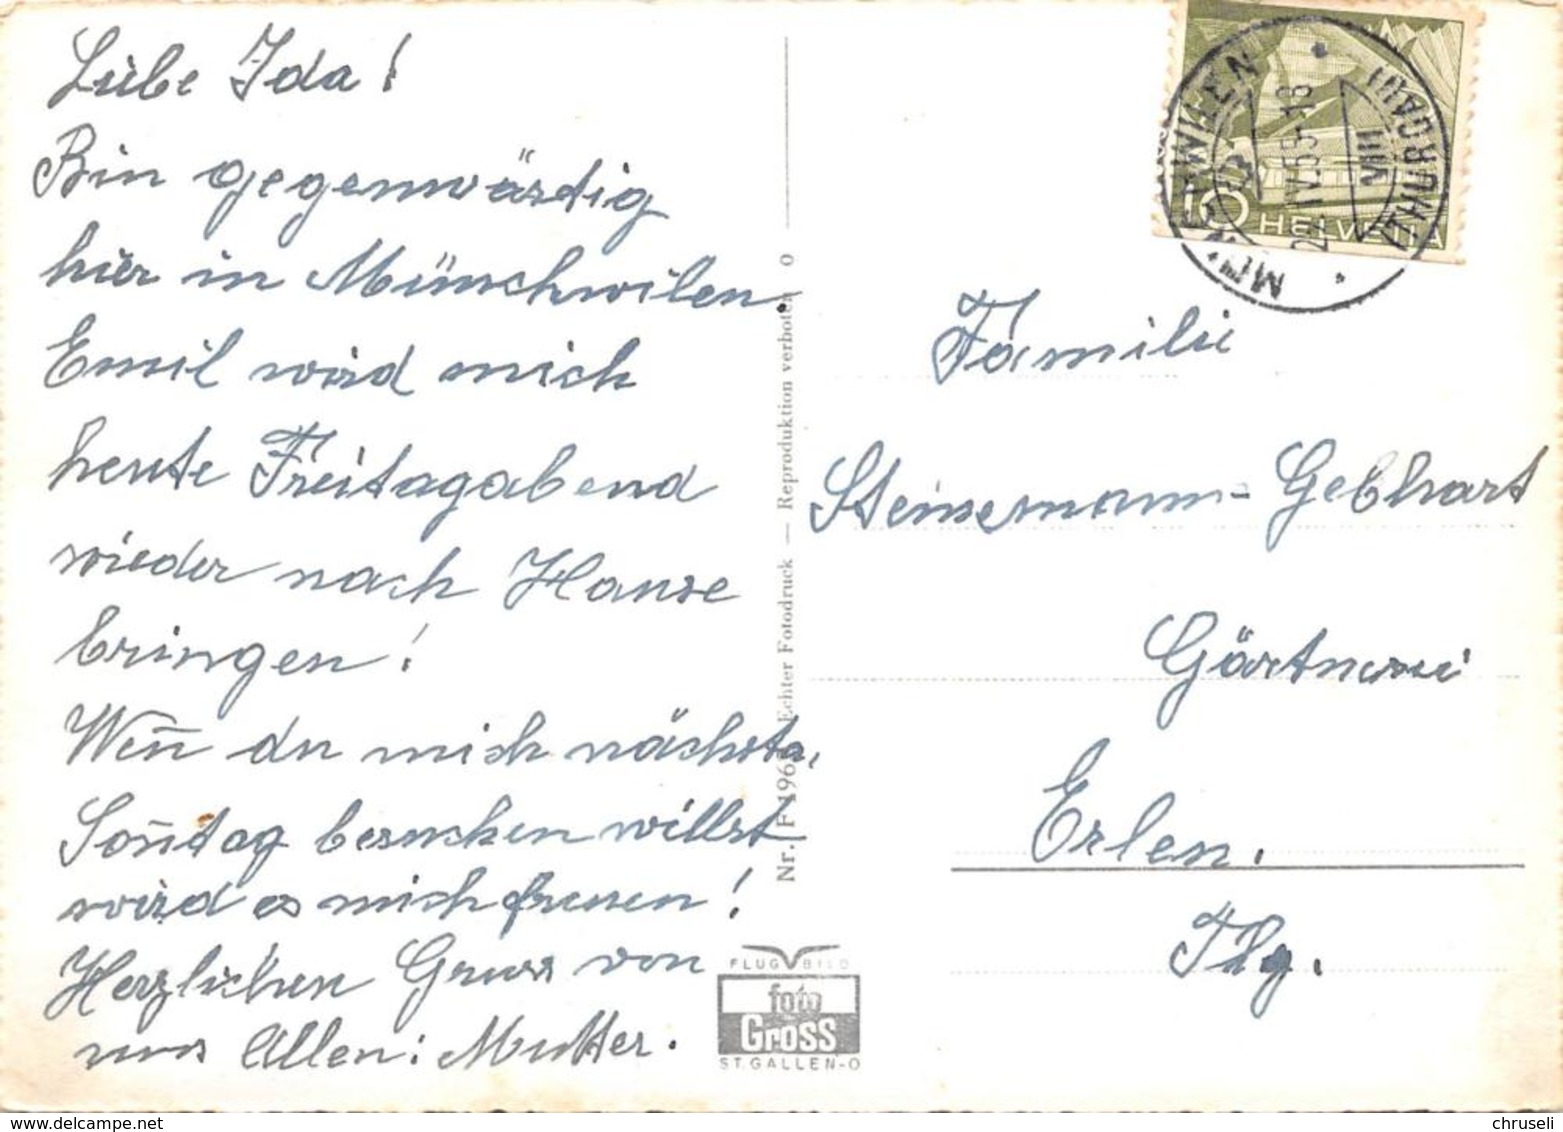 Liebe Ida!
Bin gegenwärtig
hier in Münchwilen.
Emil wird mich
heute Freitagabend
wieder nach Hause
bringen!
Weñ du mich nächsten
Soñtag besuchen willst
wird es mich freuen!
Herzlichen Gruss von
uns Allen: Mutter.
Nr. F 196 Echter Fotodruck — Reproduktion verboten o
FLUG BILD
foto
Gross
ST. GALLEN-O
10 HELVETIA
(THURGAU)
VIII
22.IV.55-18
Familie
Steinemann-Gebhart
Gärtnerei
Erlen.
Thg.
chruseli